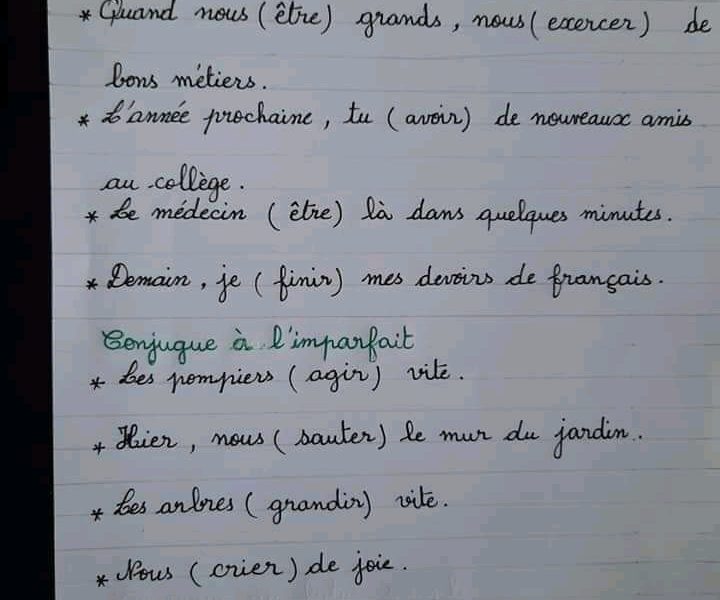 * Quand nous (être) grands, nous (exercer) de
bons métiers.
* L'année prochaine, tu (avoir) de nouveaux amis
au collège.
* Le médecin (être) là dans quelques minutes.
* Demain, je (finir) mes devoirs de français.
Conjugue à l'imparfait
* Les pompiers (agir) vite.
* Hier, nous (sauter) le mur du jardin.
* Les arbres (grandir) vite.
* Nous (crier) de joie.